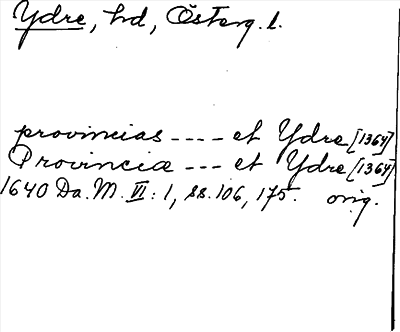 Ydre, hd, Österg. l.
provincias ---- et Ydre [1364]
Provincia --- et Ydre [1364]
1640 Da. M. VI: 1, ss. 106, 175. orig.